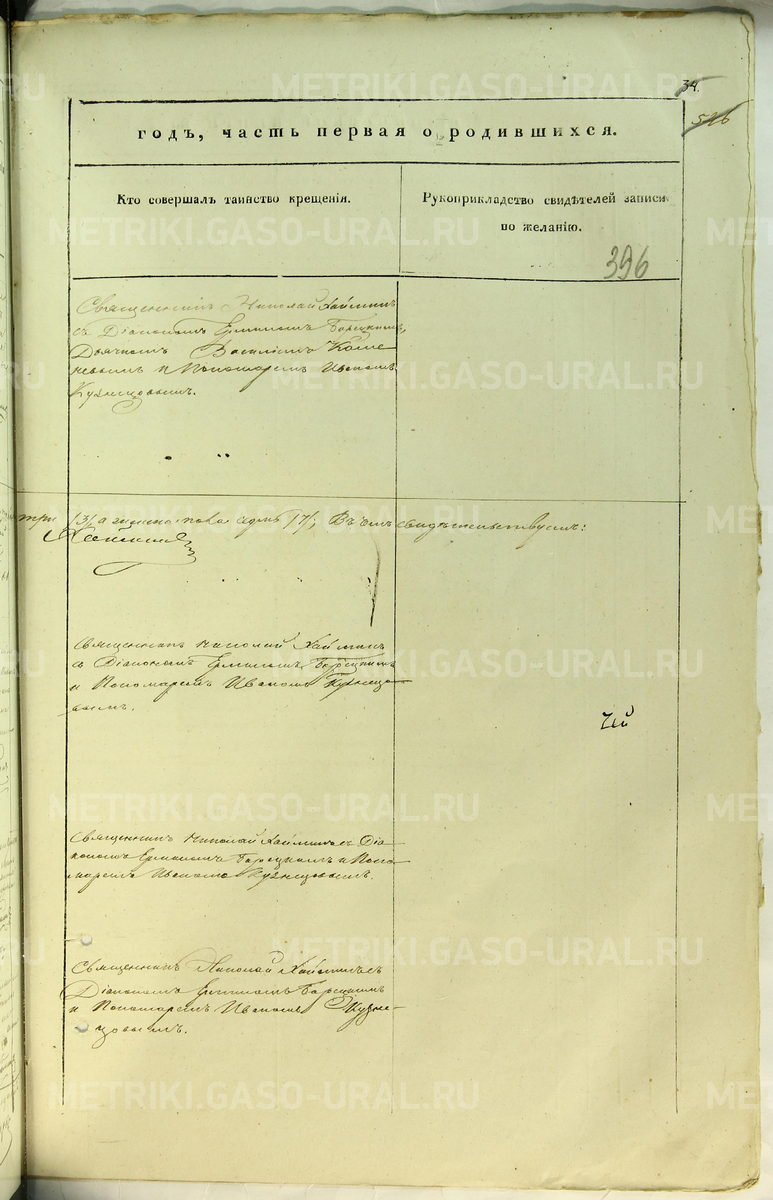 34.
526
годъ, часть первая о родившихся.
Кто совершалъ таинство крещенія.
Рукоприкладство свидѣтелей записи
по желанію.
396
Священникъ Николай
съ Діакономъ Ермиломъ Борецкимъ,
Дьячкомъ Василіемъ Каме
невымъ и Пономаремъ Иваномъ
Кузнецовымъ.
три /3/ а женска пола седмь /7/; Въ чемъ свидѣтельствуемъ:
Священникъ Николай
съ Діакономъ Ермиломъ Борецкимъ
и Пономаремъ Иваномъ Кузнецо-
вымъ.
Священникъ Николай съ Діа-
кономъ Ермиломъ Борецкимъ и Поно-
маремъ Иваномъ Кузнецовымъ.
Священникъ Николай съ
Діакономъ Ермиломъ Борецкимъ
и Пономаремъ Иваномъ Кузне-
цовымъ.
METRIKI.GASO-URAL.RU